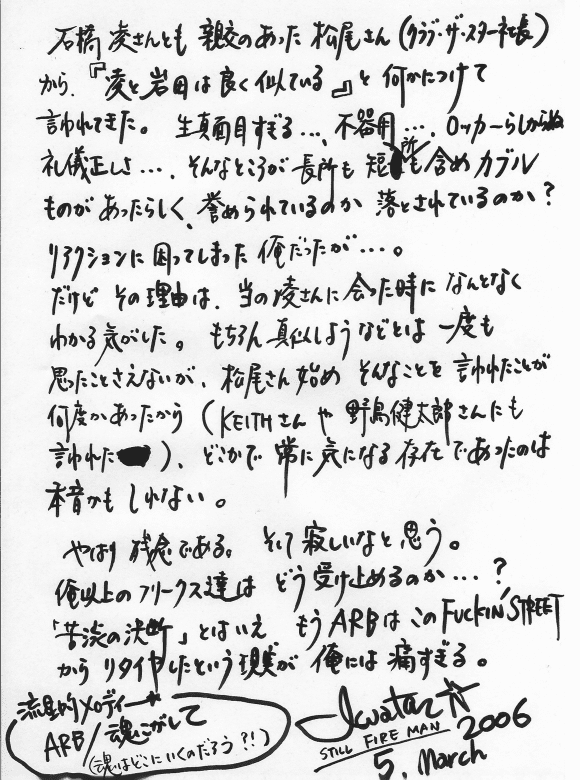 石橋 凌さんとも 親交のあった 松尾さん(クラブ・ザ・スター社長)
から、『凌と岩田は良く似ている』と 何かにつけて
言われてきた。 生真面目すぎる…、不器用…、ロッカーらしからぬ
礼儀正しさ…、そんなところが 長所も 短所も含めカブル
ものが あったらしく、誉められているのか 落とされているのか?
リアクションに 困ってしまった 俺だったが…。
だけど その理由は、当の凌さんに 会った時に なんとなく
わかる気がした。 もちろん 真似しよう などとは 一度も
思ったことさえないが、松尾さん始め そんなことを 言われたことが
何度かあったから (KEITHさん や 野島健太郎さんにも
言われた)、どこかで 常に気になる存在であったのは
本音かも しれない。
やはり 残念である。 そして 寂しいなと 思う。
俺以上の フリークス達は どう 受け止めるのか…?
「苦渋の決断」とはいえ、もう ARBは この FUCKIN' STREET
から リタイヤしたという 現実が 俺には 痛すぎる。
流星的メロディー★
ARB/魂こがして
(魂はどこにいくのだろう?!)
Iwatar
STILL FIRE MAN
2006
5. March